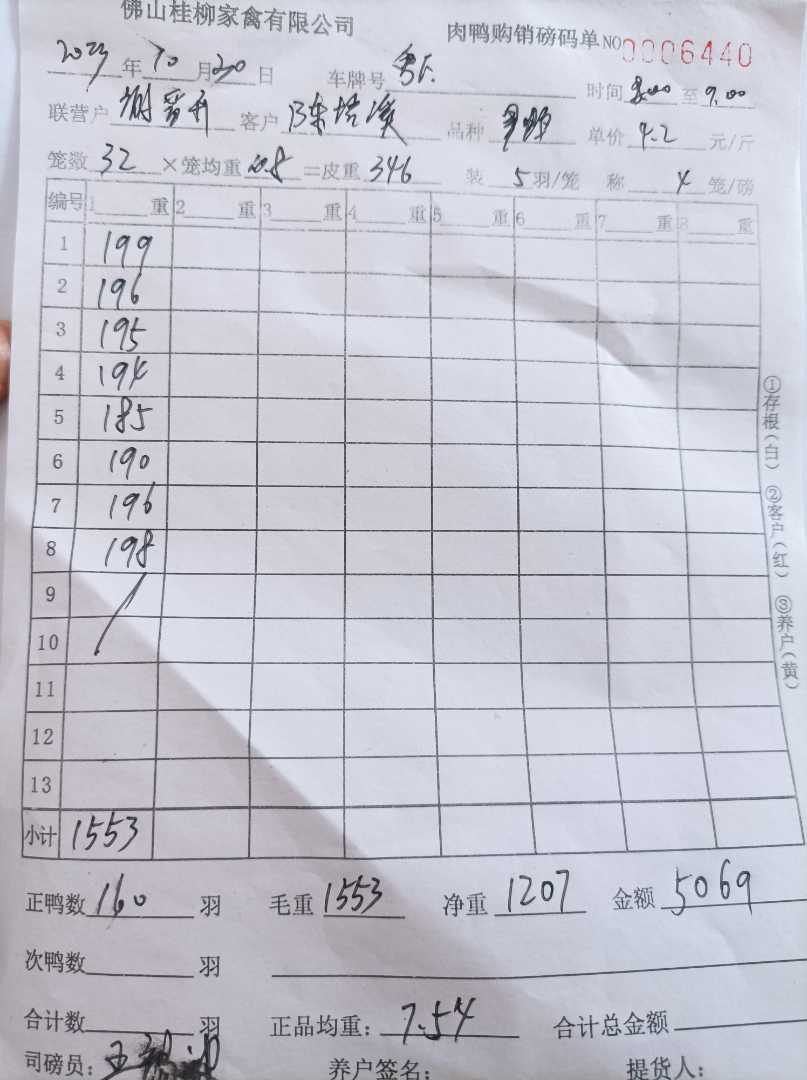 佛山桂柳家禽有限公司
肉鸭购销磅码单 NO 0006440
2023年10月30日 车牌号 粤F 时间 8:00 至 9:00
联营户 客户 陈培 品种 单价 4.2 元/斤
笼数 32 ×笼均重 10.8 =皮重 346 装 5 羽/笼 称 4 笼/磅
编号 1 重 2 重 3 重 4 重 5 重 6 重 7 重 8 重
1 199
2 196
3 195
4 194
5 185
6 190
7 196
8 198
9
10
11
12
13
小计 1553
正鸭数 160 羽 毛重 1553 净重 1207 金额 5069
次鸭数 羽
合计数 羽 正品均重: 7.54 合计总金额
司磅员: 王 养户签名: 提货人:
①存根(白) ②客户(红) ③养户(黄)